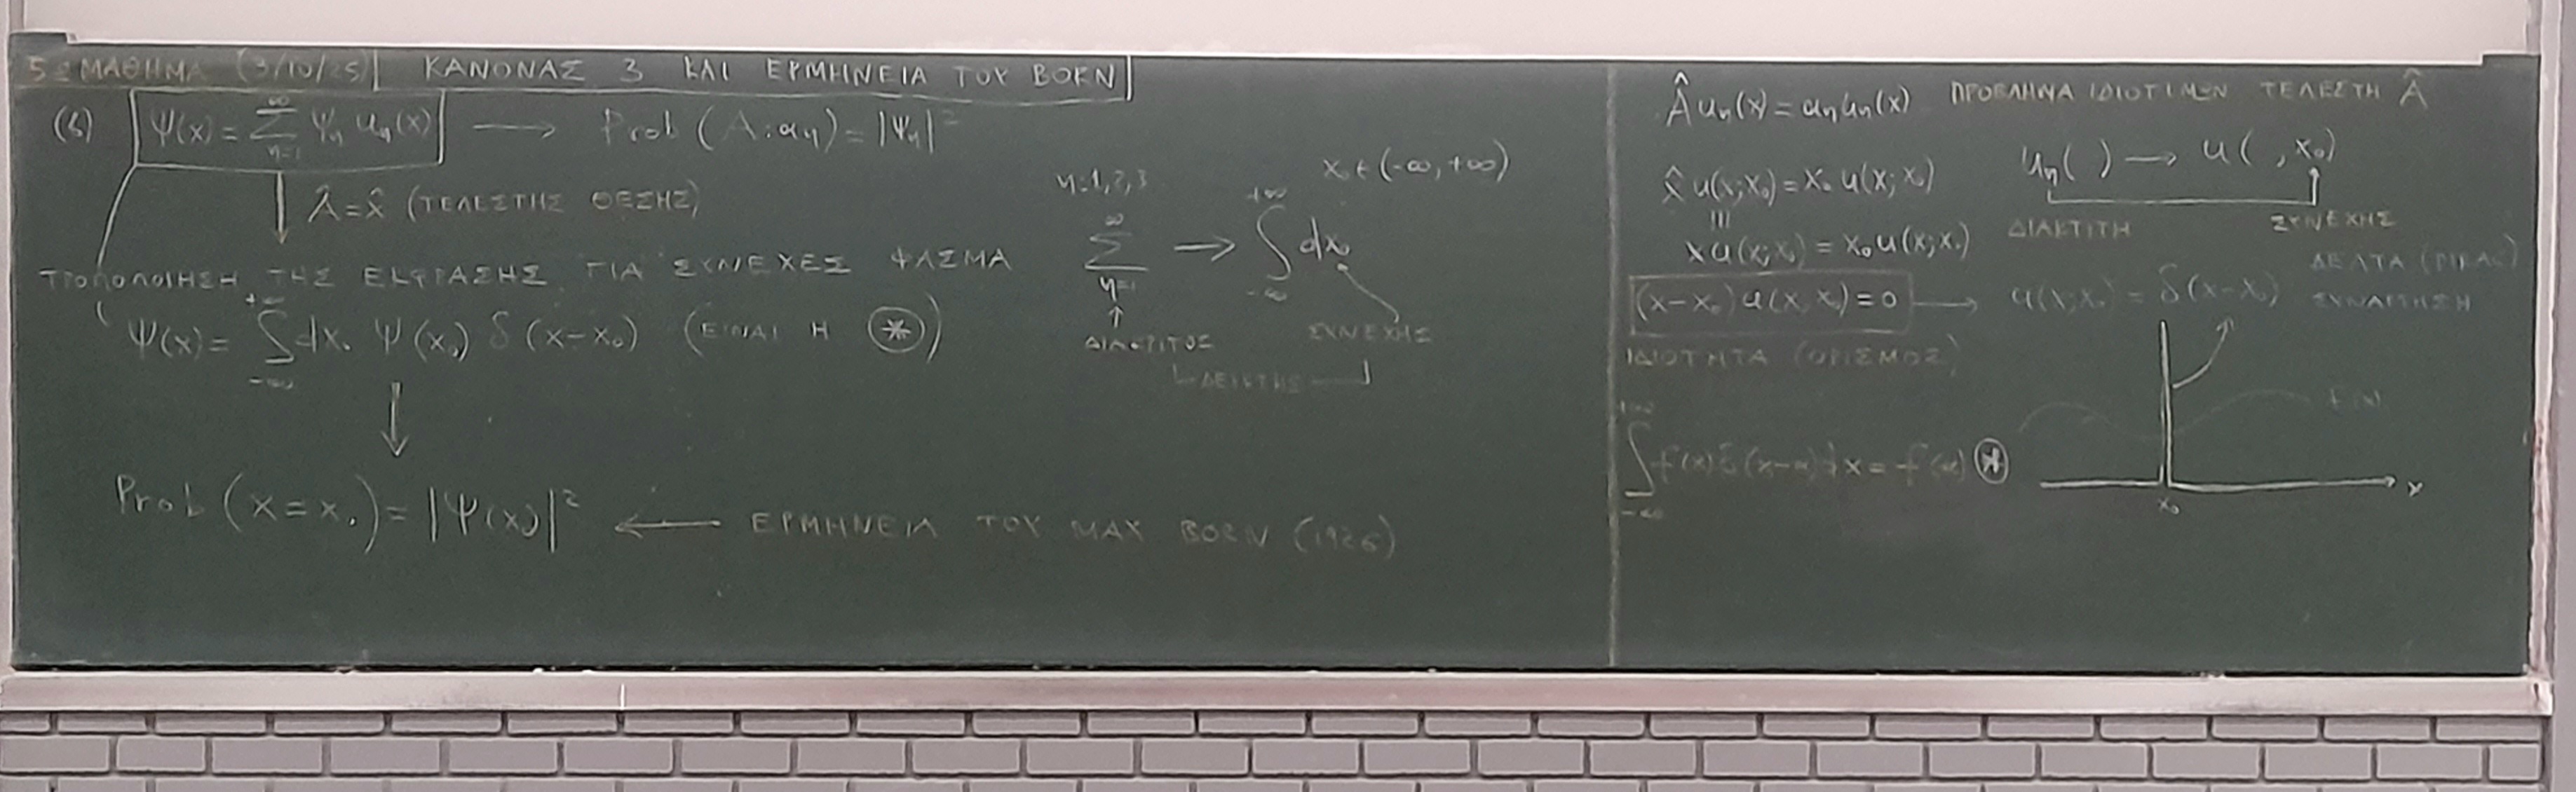 5ο ΜΑΘΗΜΑ (3/10/25) ΚΑΝΟΝΑΣ 3 ΚΑΙ ΕΡΜΗΝΕΙΑ ΤΟΥ BORN
Ψ(x) = ∑_{n=1}^{∞} Ψ_n u_n(x) → Prob (A: a_n) = |Ψ_n|²
↓ Â = x̂ (ΤΕΛΕΣΤΗΣ ΘΕΣΗΣ)
ΤΡΟΠΟΠΟΙΗΣΗ ΤΗΣ ΕΚΦΡΑΣΗΣ ΓΙΑ ΣΥΝΕΧΕΣ ΦΑΣΜΑ
Ψ(x) = ∫_{-∞}^{+∞} dx₀ Ψ(x₀) δ(x-x₀) (ΕΙΝΑΙ Η ⊛)
↓
Prob (x = x₀) = |Ψ(x₀)|² ← ΕΡΜΗΝΕΙΑ ΤΟΥ MAX BORN (1926)
x₀ ∈ (-∞, +∞)
n=1,2,3
∑_{n=1}^{∞} → ∫_{-∞}^{+∞} dx₀
ΔΙΑΚΡΙΤΟΣ ΣΥΝΕΧΗΣ
ΔΕΙΚΤΗΣ
Â u_n(x) = a_n u_n(x) ΠΡΟΒΛΗΜΑ ΙΔΙΟΤΙΜΩΝ ΤΕΛΕΣΤΗ Â
u_n( ) → u( , x₀)
x̂ u(x; x₀) = x₀ u(x; x₀)
≡
x u(x; x₀) = x₀ u(x; x₀)
ΔΙΑΚΡΙΤΗ ΣΥΝΕΧΗΣ
(x-x₀) u(x, x₀) = 0 → u(x; x₀) = δ(x-x₀) ΔΕΛΤΑ (DIRAC) ΣΥΝΑΡΤΗΣΗ
ΙΔΙΟΤΗΤΑ (ΟΡΙΣΜΟΣ)
∫_{-∞}^{+∞} f(x) δ(x-a) dx = f(a) ⊛
f(x)
x
x₀